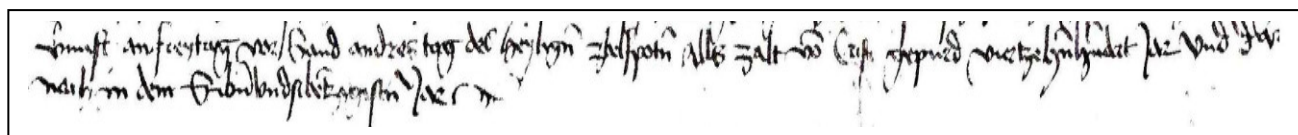 an freytag vor Sand andres tag des heyligñ zbelfpotñ Alls zalt võ Crist gepurd viertzehñhũdert Jar Und dar
nach in dem Sibñ undsibentzgistñ Jar